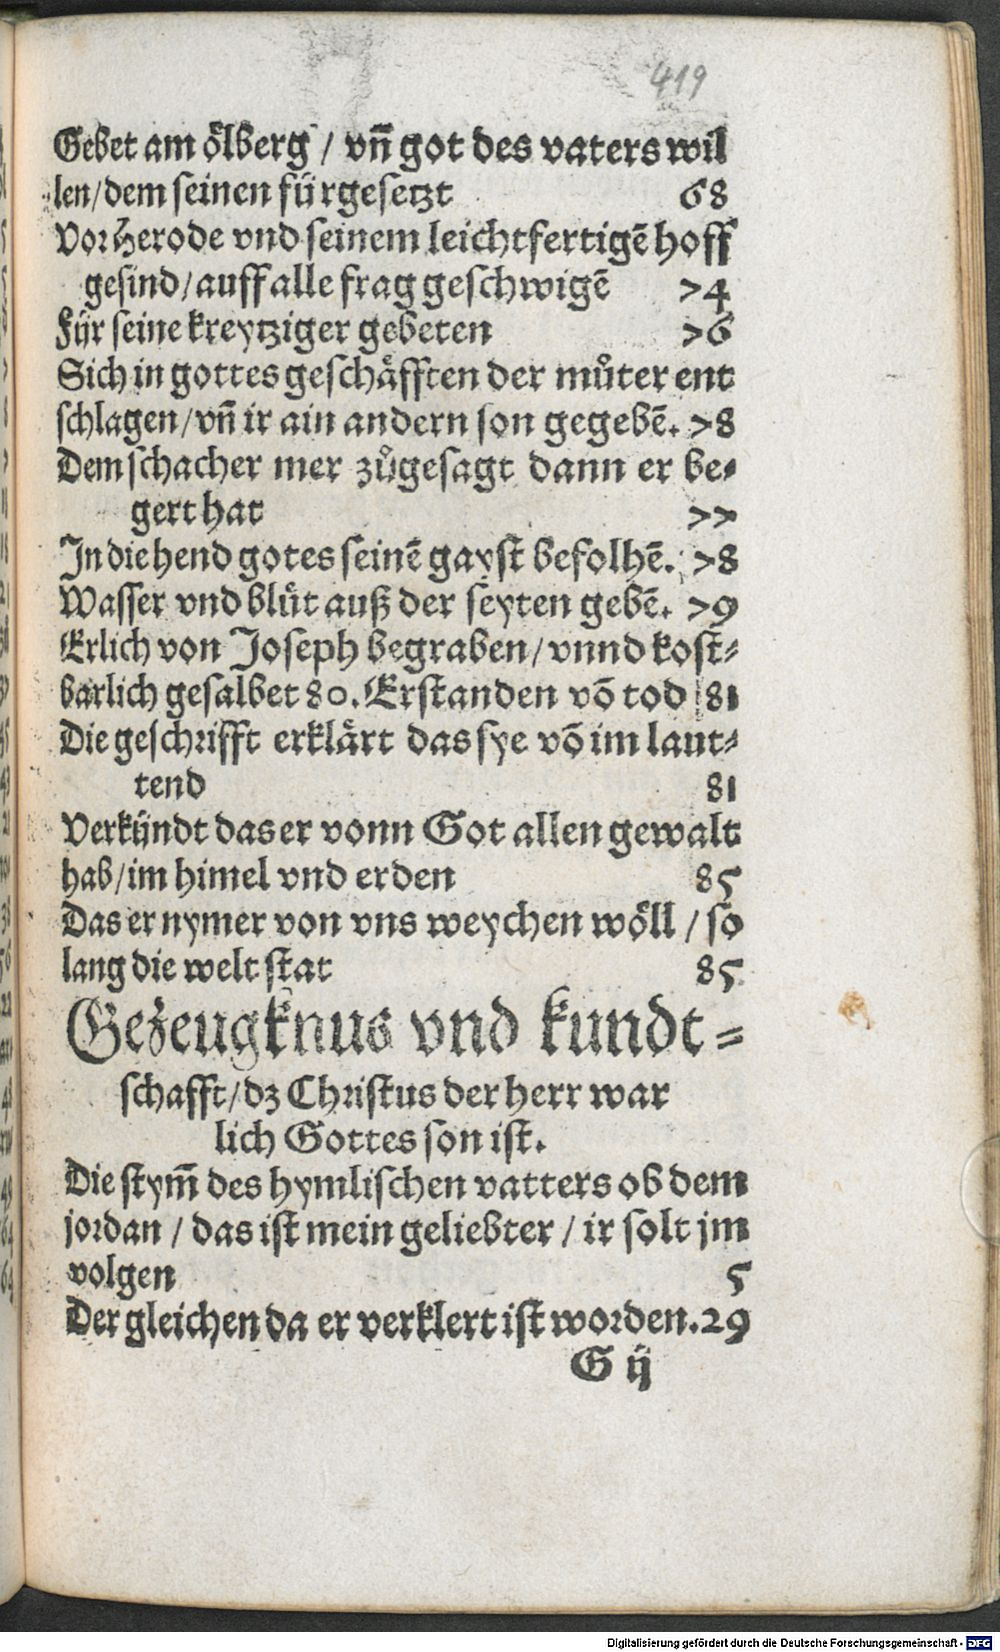 419
Gebet am ölberg / vn̄ got des vaters wil
len / dem seinen fürgesetzt 68
Vor Herode vnd seinem leichtfertigē hoff
gesind / auff alle frag geschwigē 74
Für seine kreytziger gebeten 76
Sich in gottes geschäfften der můter ent
schlagen / vn̄ ir ain andern son gegebē. 78
Dem schacher mer zůgesagt dann er be-
gert hat 77
In die hend gotes seinē gayst befolhē. 78
Wasser vnd blůt auß der seyten gebē. 79
Erlich von Joseph begraben / vnnd kost-
barlich gesalbet 80. Erstanden vō tod 81
Die geschrifft erklärt das sye vō im laut-
tend 81
Verkündt das er vonn Got allen gewalt
hab / im himel vnd erden 85
Das er nymer von vns weychen wöll / so
lang die welt stat 85
Gezeugknus vnd kundt-
schafft / dz Christus der herr war
lich Gottes son ist.
Die stym̄ des hymlischen vatters ob dem
jordan / das ist mein geliebter / ir solt jm
volgen 5
Der gleichen da er verklert ist worden. 29
G ij
Digitalisierung gefördert durch die Deutsche Forschungsgemeinschaft - DFG